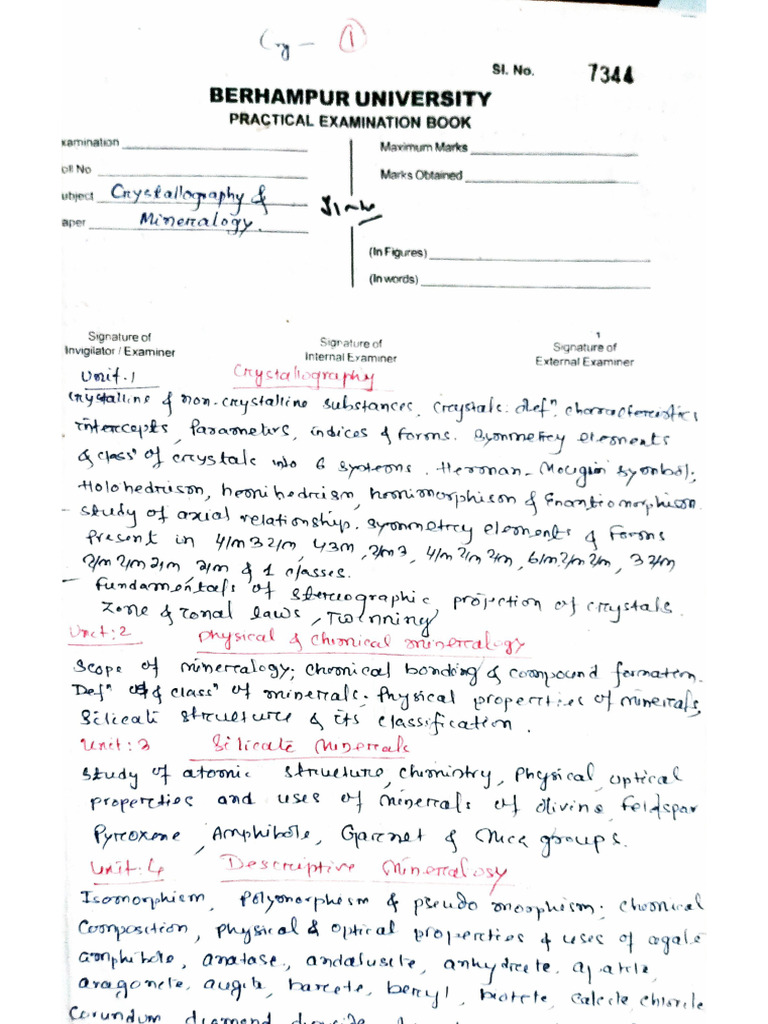 Cry - 1
Sl. No. 7344
BERHAMPUR UNIVERSITY
PRACTICAL EXAMINATION BOOK
xamination
Maximum Marks
oll No
Marks Obtained
ubject Crystallography &
aper Mineralogy.
(In Figures)
(In words)
1
Signature of Invigilator / Examiner
Signature of Internal Examiner
Signature of External Examiner
Unit.1 Crystallography
Crystalline & non-crystalline substances, crystals: defn, characteristics
intercepts, Parameters, indices & forms. Symmetry elements
& classn of crystals into 6 systems. Herman-Mougin symbol;
Holohedrison, hemihedrism, hemimorphison & Enantiomorphison.
- study of axial relationship. symmetry elements & forms
Present in 4/m32/m, 43m, 2/m3, 4/m2/m2/m, 6/m2/m2/m, 32/m
2/m2/m2/m 2/m & 1 classes.
- Fundamentals of stereographic projection of crystals.
Zone & zonal laws, Twinning
Unit:2 Physical & chemical mineralogy
Scope of mineralogy; chemical bonding & compound formation.
Defn & classn of minerals. Physical properties of minerals,
Silicate structure & its classification.
Unit:3 Silicate Minerals
Study of atomic structure, chemistry, Physical, optical
properties and uses of minerals of olivine, feldspar
Pyroxene, Amphibole, Garnet & Mica groups.
Unit:4 Descriptive Mineralogy
Isomorphism, Polymorphesm & pseudo morphism. chemical
Composition, physical & optical properties & uses of agate
amphibole, anatase, andalusite, anhydrete, apatite,
aragonete, augite, barete, beryl, biotete, calcete chlorete
Corundum diamond diopside